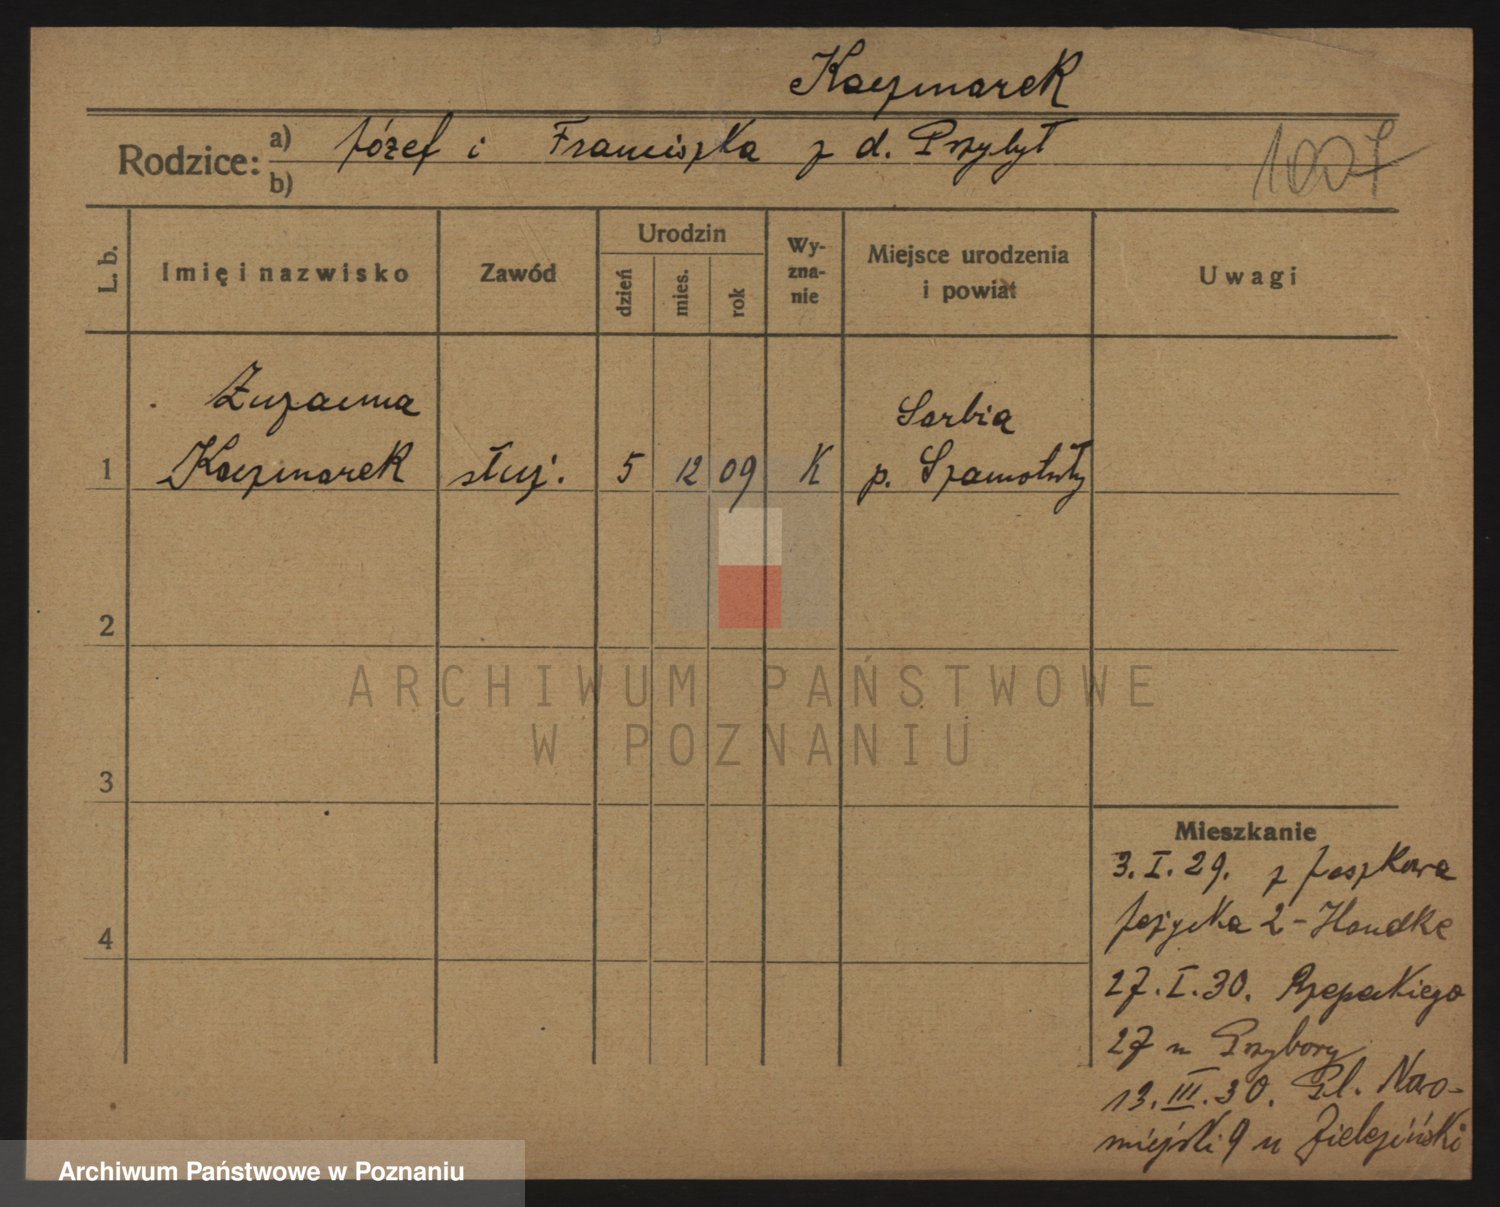 Kaczmarek
Rodzice: a) Józef i Franciszka z d. Przybył
b)
1007
L. b.
Imię i nazwisko
Zawód
Urodzin
dzień
mies.
rok
Wy-
zna-
nie
Miejsce urodzenia
i powiat
Uwagi
Zuzanna
Sarbia
1 Kaczmarek służ. 5 12 09 K p. Szamotuły
2
ARCHIWUM PAŃSTWOWE
W POZNANIU
3
Mieszkanie
3.I.29. z Jaszkowa
Jeżycka 2 - Handke
4
27.I.30. Rzepeckiego
27 u Przybory
13.III.30. Pl. Nowo-
miejski 9 u Zieleziński
Archiwum Państwowe w Poznaniu